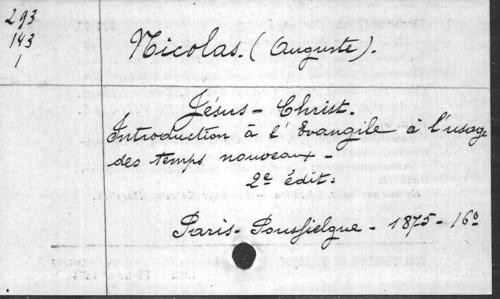 293
143
1
Nicolas. (Auguste).
Jésus-Christ.
Introduction à l'Evangile à l'usage
des temps nouveaux -
2e édit:
Paris - Poussielgue - 1875 - 16o